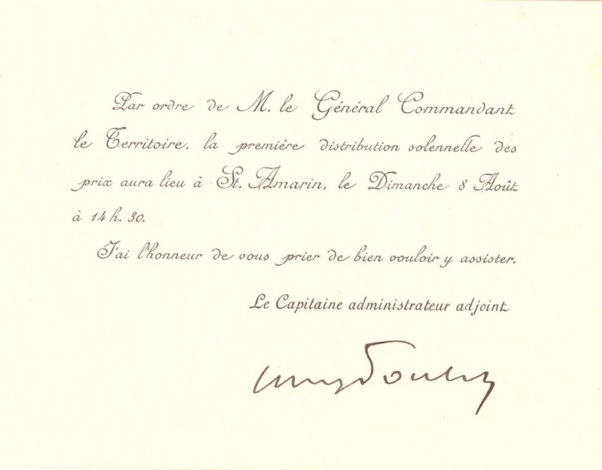 Par ordre de M. le Général Commandant
le Territoire, la première distribution solennelle des
prix aura lieu à St. Amarin, le Dimanche 8 Août
à 14 h. 30.
J'ai l'honneur de vous prier de bien vouloir y assister.
Le Capitaine administrateur adjoint